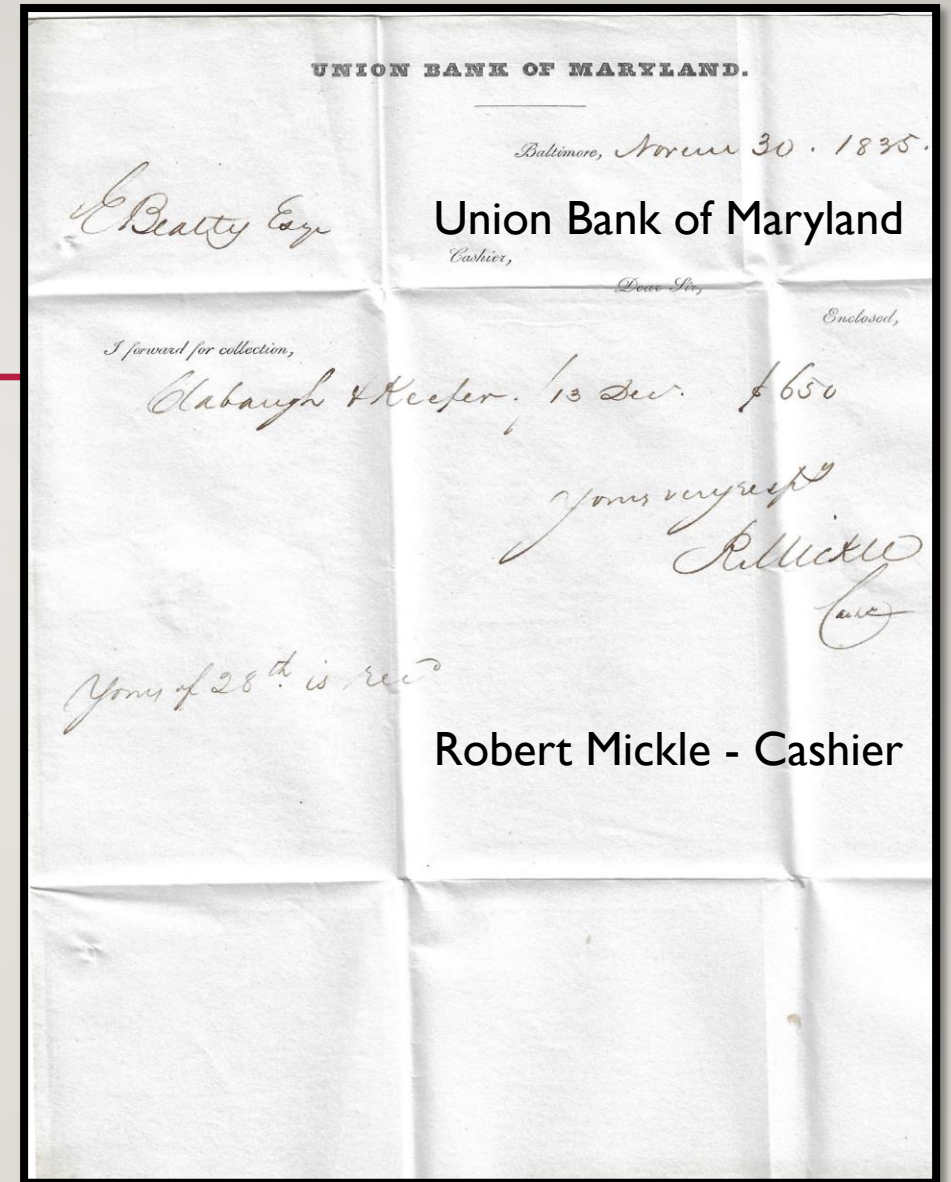 UNION BANK OF MARYLAND.
Baltimore, Novem 30. 1835.
E Beatty Esqr
Union Bank of Maryland
Cashier,
Dear Sir,
Enclosed,
I forward for collection,
Clabaugh & Keefer. /13 Dec. $650
Yours very respy
R. Mickle
Yours of 28th is recd
Robert Mickle - Cashier